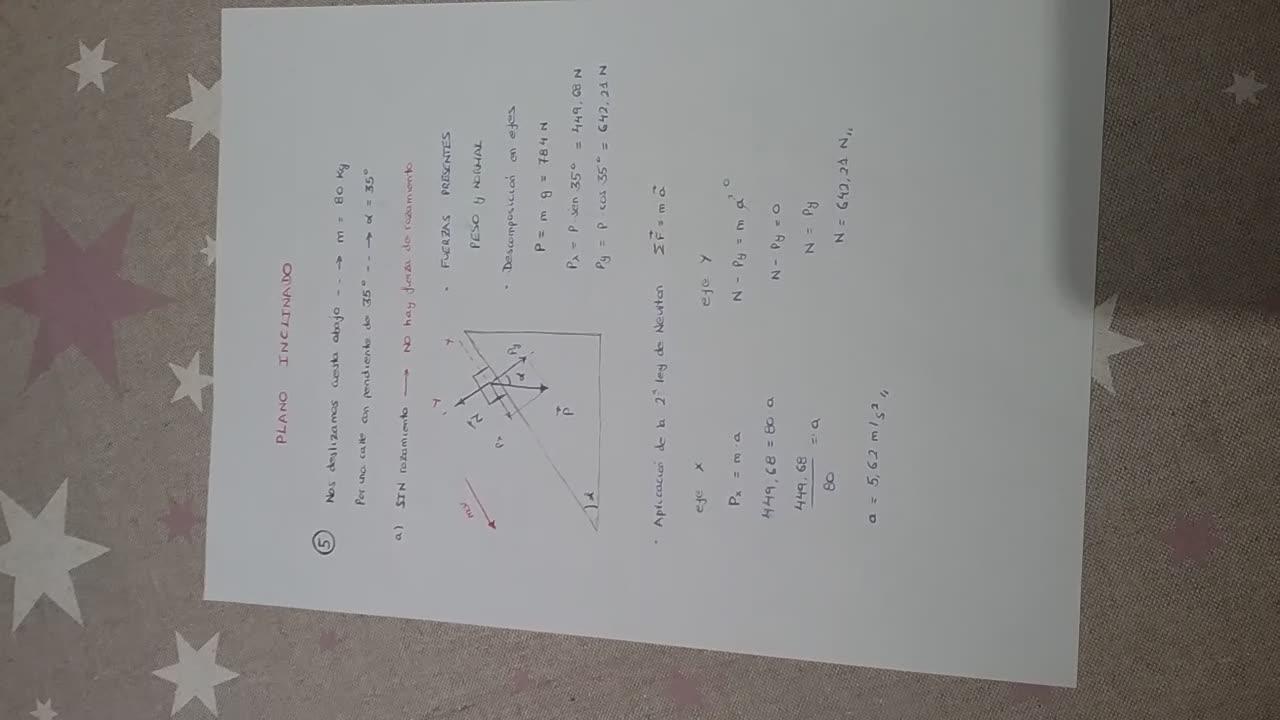 PLANO INCLINADO
⑤ Nos deslizamos cuesta abajo --→ m = 80 Kg
Por una calle con pendiente de 35º --→ α = 35º
a) SIN rozamiento → NO hay fuerza de rozamiento
mv
Y
X
N
Px
Py
α
P
α
· FUERZAS PRESENTES
PESO y NORMAL
· Descomposición en ejes
P = m g = 784 N
Px = P · sen 35º = 449,68 N
Py = P · cos 35º = 642,21 N
· Aplicación de la 2ª ley de Newton ΣF = m a
eje X
Px = m · a
449,68 = 80 · a
449,68 / 80 = a
a = 5,62 m/s²,,
eje Y
N - Py = m a 0
N - Py = 0
N = Py
N = 642,21 N,,